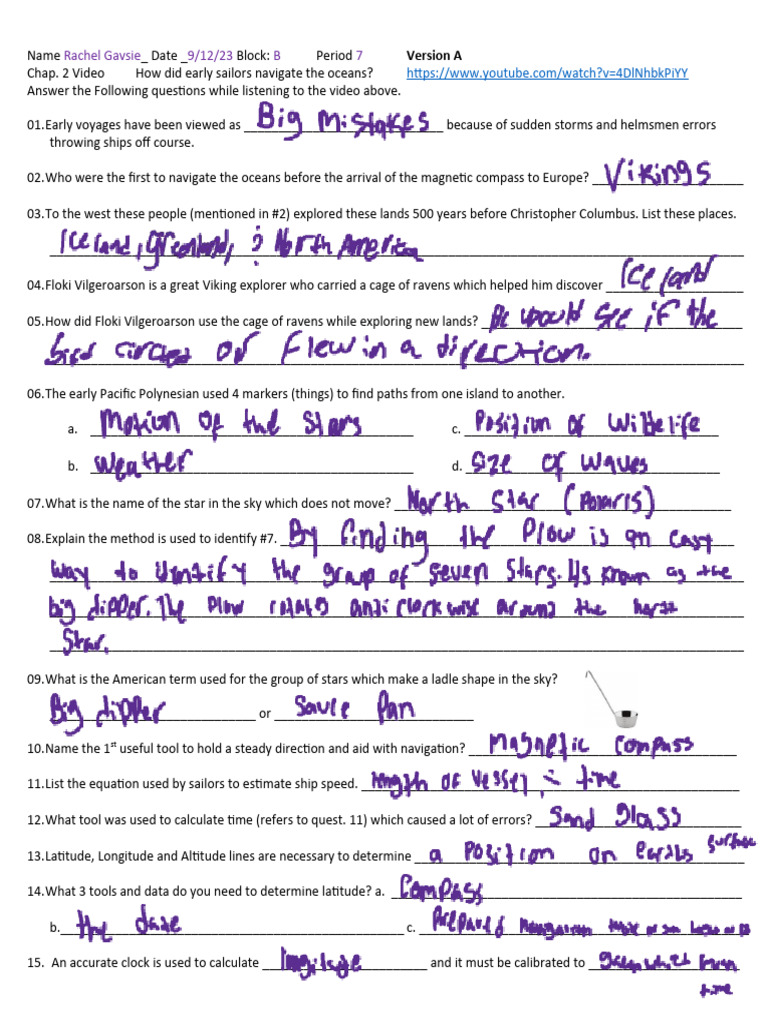 Name Rachel Gavsie_ Date _9/12/23 Block: B Period 7 Version A
Chap. 2 Video How did early sailors navigate the oceans? https://www.youtube.com/watch?v=4DlNhbkPiYY
Answer the Following questions while listening to the video above.
01.Early voyages have been viewed as Big Mistakes because of sudden storms and helmsmen errors
throwing ships off course.
02.Who were the first to navigate the oceans before the arrival of the magnetic compass to Europe? Vikings
03.To the west these people (mentioned in #2) explored these lands 500 years before Christopher Columbus. List these places.
Iceland, Greenland, & North America
04.Floki Vilgeroarson is a great Viking explorer who carried a cage of ravens which helped him discover Iceland
05.How did Floki Vilgeroarson use the cage of ravens while exploring new lands? He would see if the
bird circles or flew in a direction.
06.The early Pacific Polynesian used 4 markers (things) to find paths from one island to another.
a. Motion of the Stars c. Position of Wildelife
b. Weather d. Size of waves
07.What is the name of the star in the sky which does not move? North Star (Polaris)
08.Explain the method is used to identify #7. By finding the Plow is an easy
way to identify the group of seven stars. Its known as the
big dipper. The Plow rotates anticlockwise around the north
Star.
09.What is the American term used for the group of stars which make a ladle shape in the sky?
Big dipper or Sauce Pan
10.Name the 1st useful tool to hold a steady direction and aid with navigation? Magnetic Compass
11.List the equation used by sailors to estimate ship speed. length of vessel ÷ time
12.What tool was used to calculate time (refers to quest. 11) which caused a lot of errors? Sand glass
13.Latitude, Longitude and Altitude lines are necessary to determine a position on earths surface
14.What 3 tools and data do you need to determine latitude? a. Compass
b. the date c. Prepared
15. An accurate clock is used to calculate longitude and it must be calibrated to
time